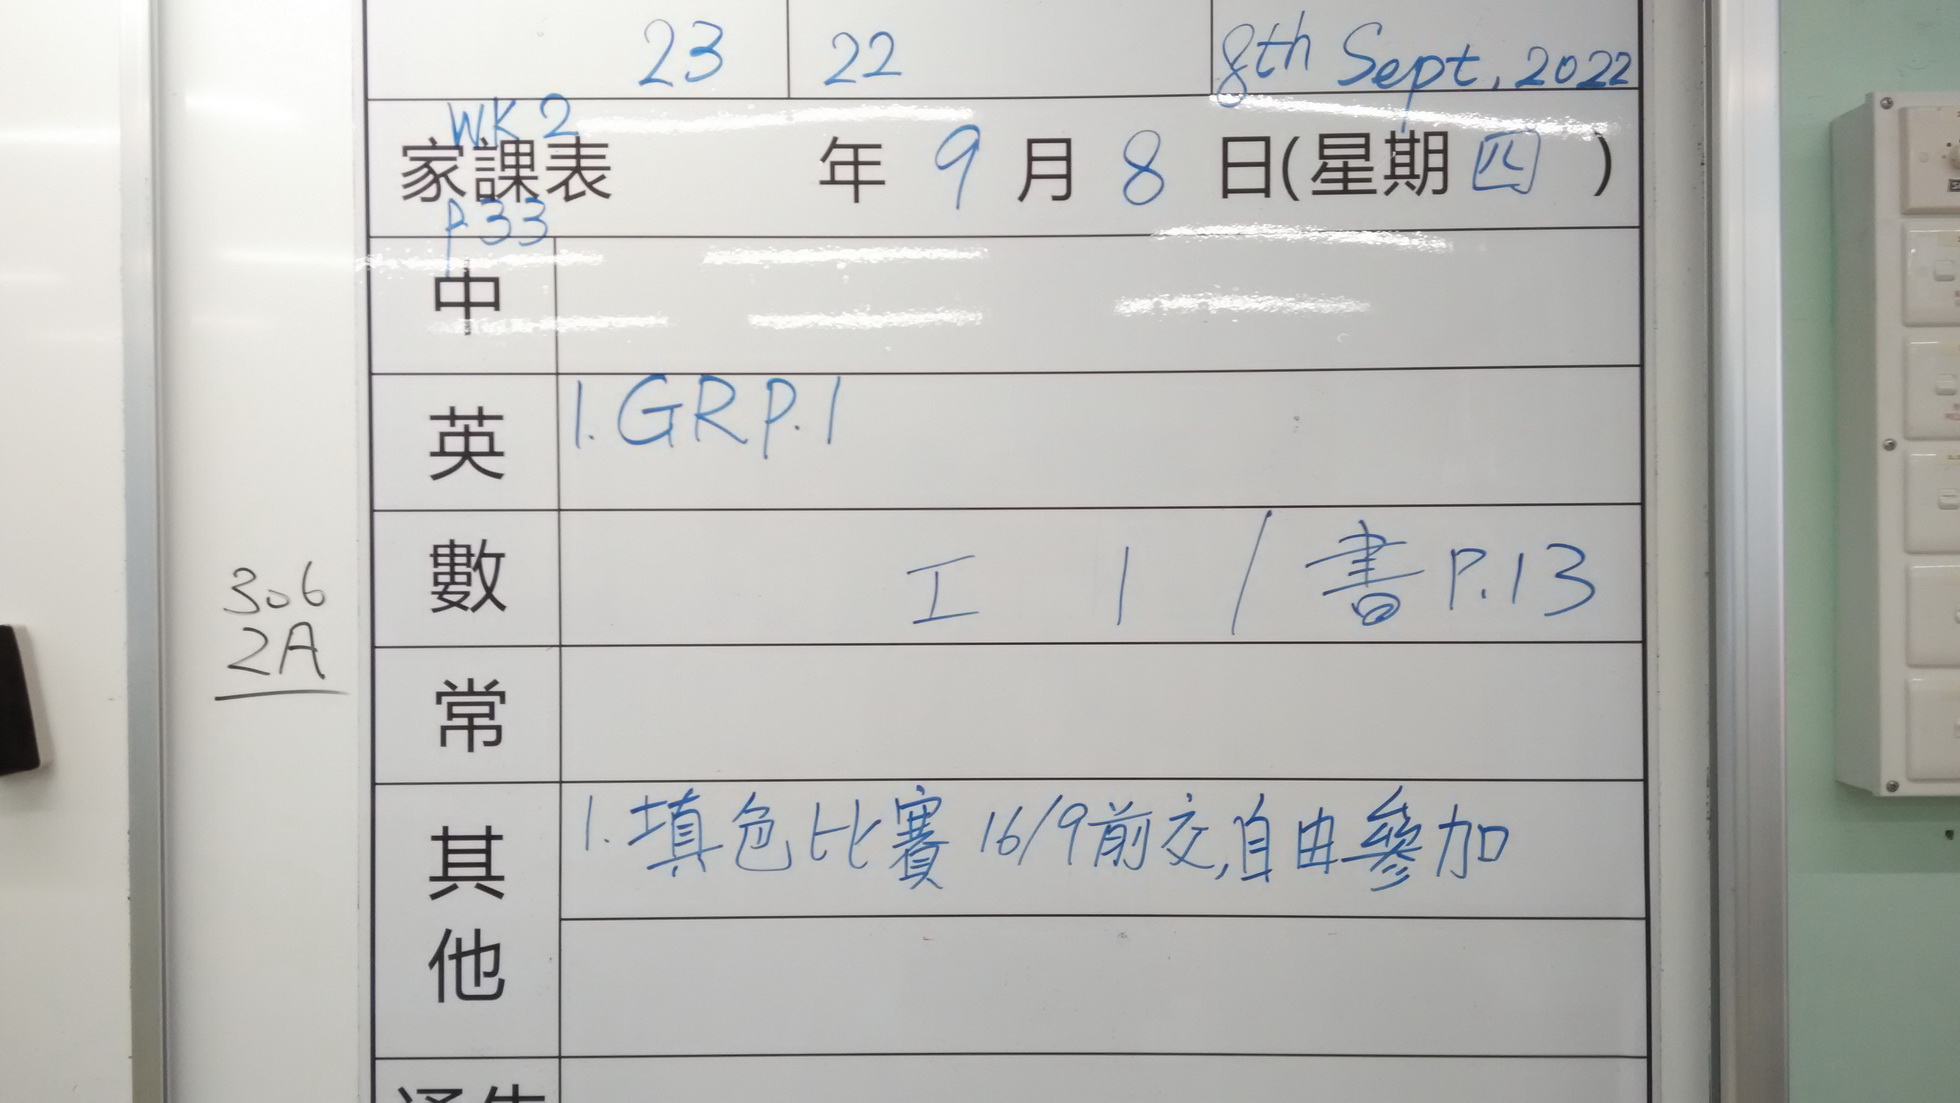 23 22 8th Sept, 2022
WK 2
家課表 年 9 月 8 日(星期 四 )
P.33
中
英 1. GR P.1
數 工 1 / 書 P.13
306
2A
常
其他 1. 填色比賽 16/9前交,自由參加
通告